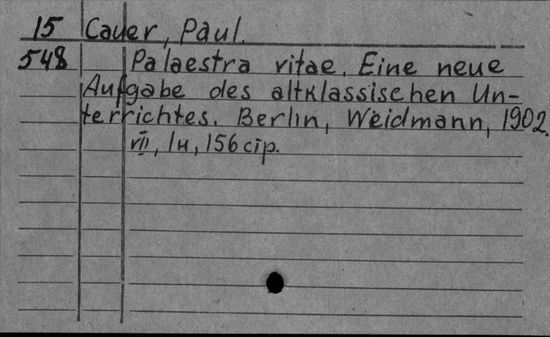 15 Cauer, Paul.
548 Palaestra vitae. Eine neue
Aufgabe des altklassischen Un-
terrichtes. Berlin, Weidmann, 1902.
VIII, 1н, 156 сір.